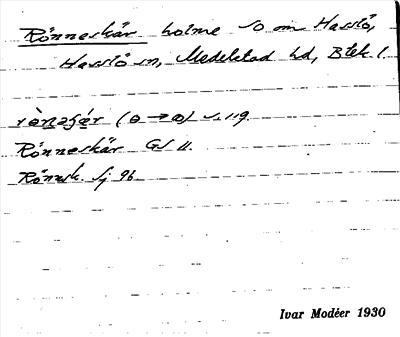 Rönneskär holme SO om Hasslö,
Hasslö sn, Medelstad hd, Blek.
(ɵ → ꙍ) s. 119.
Rönneskär GS 11.
Rönnsk. Sj 96
Ivar Modéer 1930